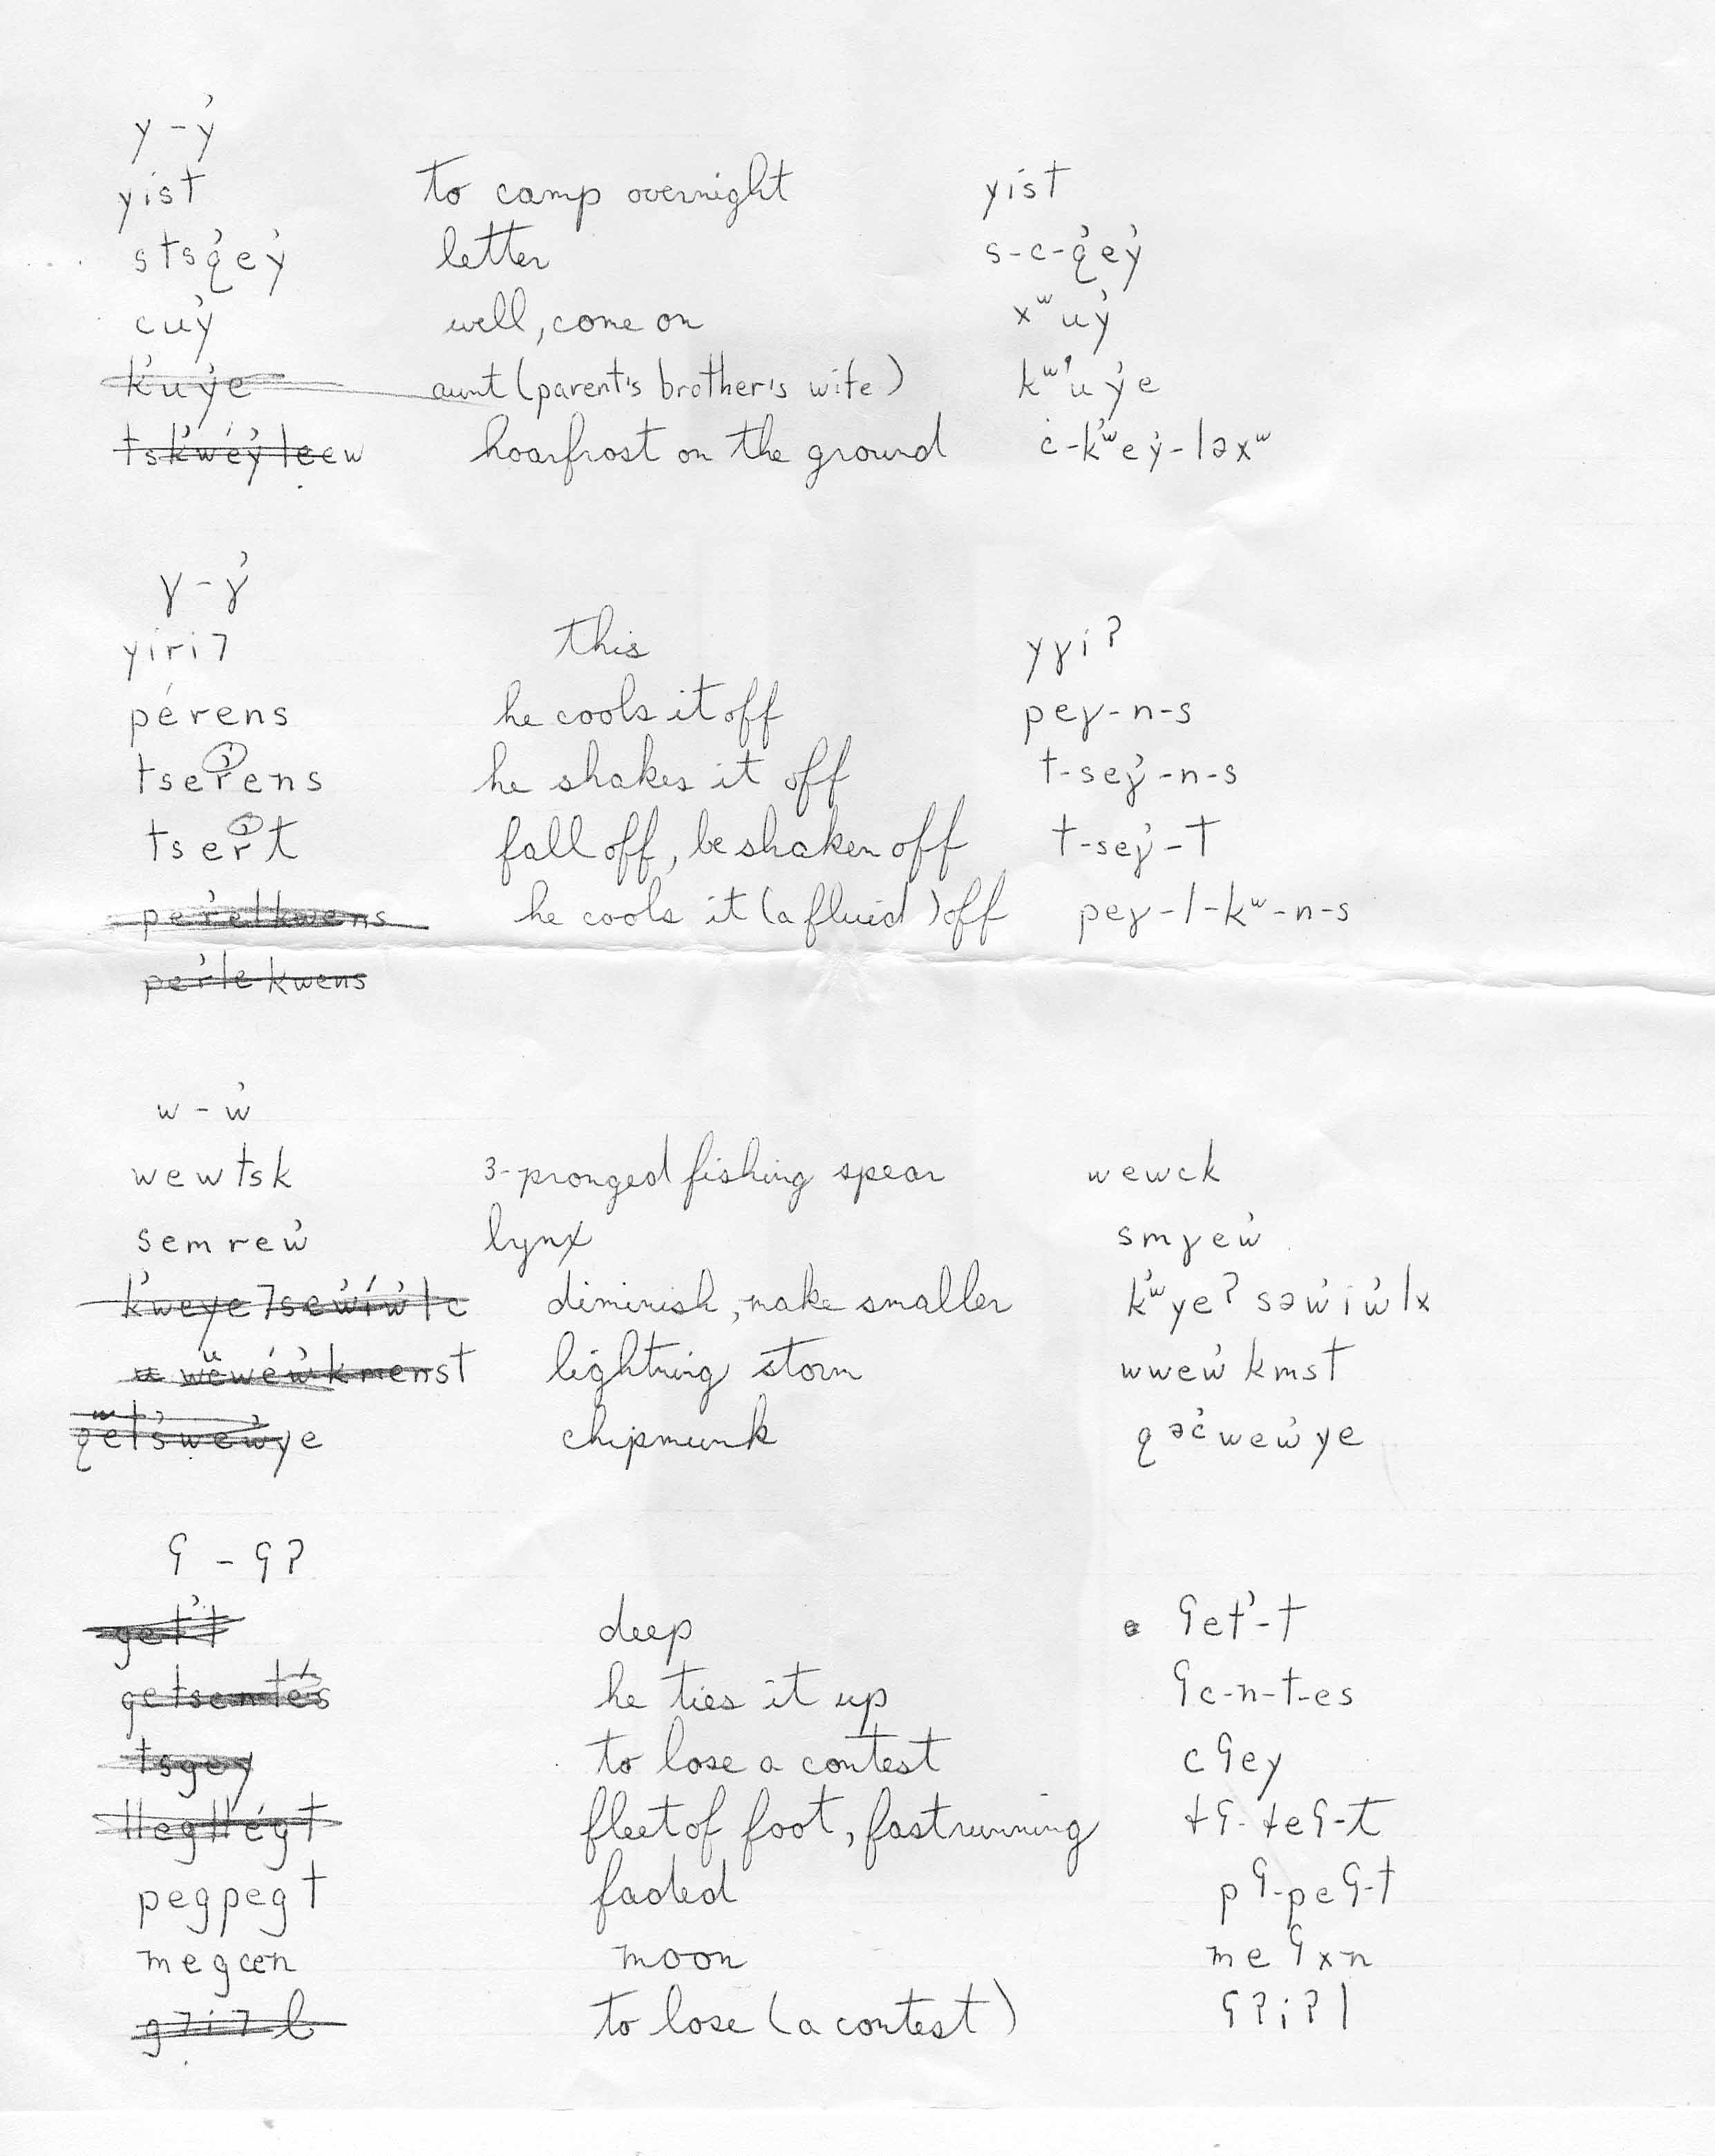 y - y̓
yist to camp overnight yist
stsq̓ey̓ letter s-c-q̓ey̓
cuy̓ well, come on xʷuy̓
k̓uy̓e aunt (parent's brother's wife) kʷ̓uy̓e
tsk̓wéy̓leew hoarfrost on the ground c̓-k̓ʷey̓-ləxʷ
ɣ - ɣ̓
yiri7 this yɣiʔ
pérens he cools it off peɣ-n-s
tser̓ens he shakes it off t-seɣ̓-n-s
tser̓t fall off, be shaken off t-seɣ̓-t
per̓elkwens he cools it (a fluid) off peɣ-l-kʷ-n-s
per̓lekwens
w - w̓
wewtsk 3-pronged fishing spear wewck
semrew̓ lynx smɣew̓
k̓weye7sew̓íw̓lc diminish, make smaller k̓ʷyeʔ səw̓iw̓lx
wewéw̓kmenst lightning storm wwew̓kmst
qets̓wew̓ye chipmunk qəc̓wew̓ye
ʕ - ʕʔ
get̓t deep ʕet̓-t
getsentés he ties it up ʕc-n-t-es
tsgey to lose a contest cʕey
llegllégt fleet of foot, fast running ɬʕ-ɬeʕ-t
pegpegt faded pʕ-peʕ-t
megcen moon meʕxn
g7i7l to lose (a contest) ʕʔiʔl